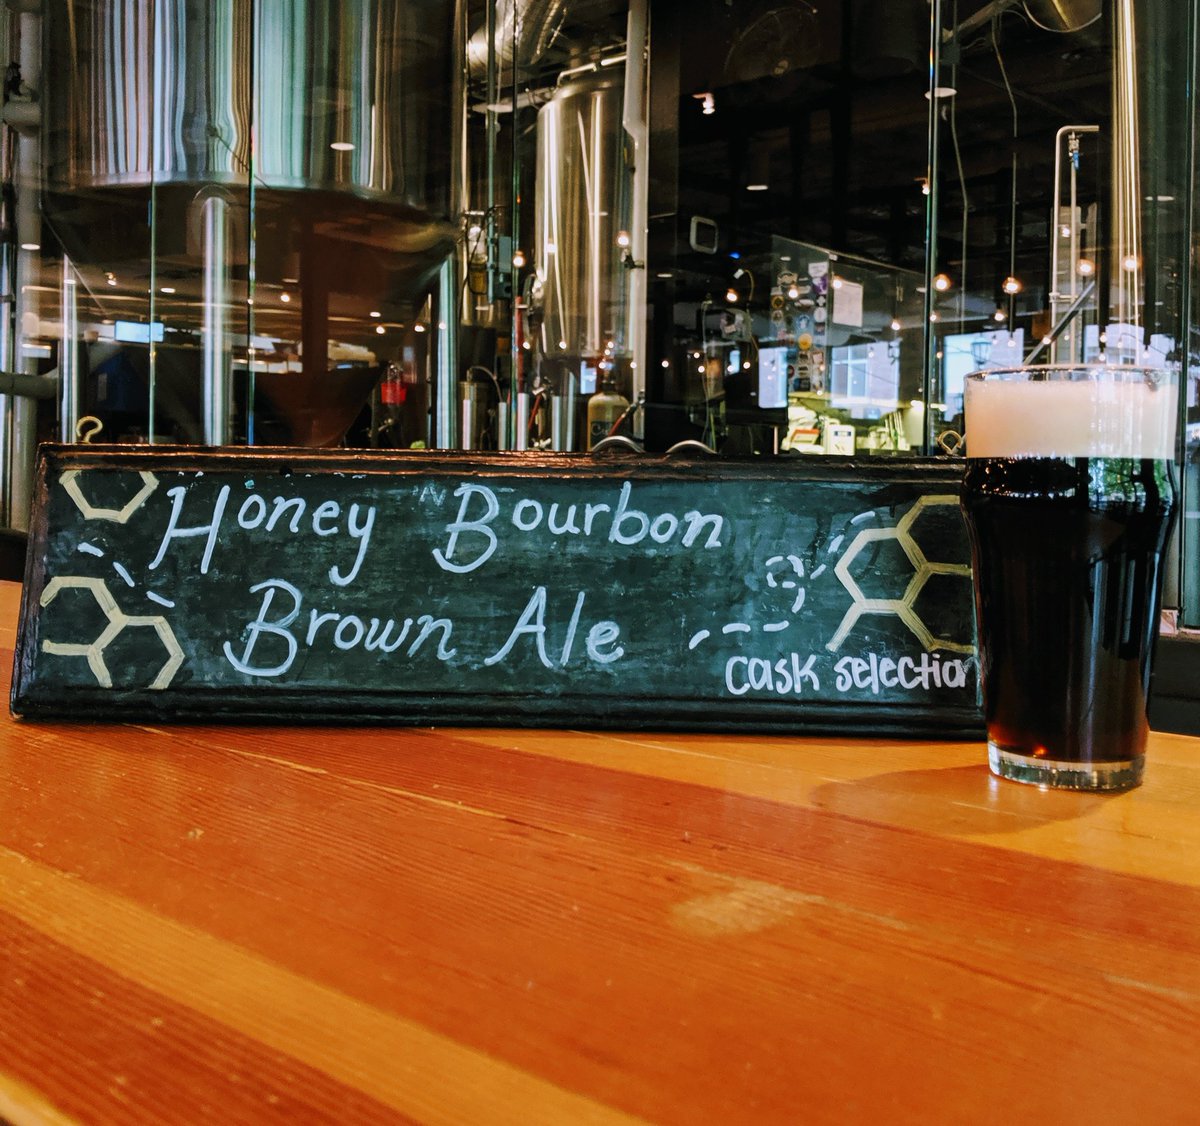 Honey Bourbon
Brown Ale
cask selection